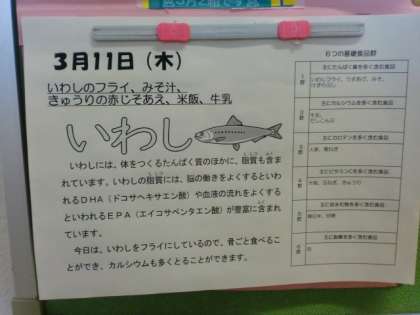 3月11日（木）
いわしのフライ、みそ汁、
きゅうりの赤じそあえ、米飯、牛乳
いわし
いわしには、体をつくるたんぱく質のほかに、脂質も含ま
れています。いわしの脂質には、脳の働きをよくするとい
われるDHA（ドコサヘキサエン酸）や血液の流れをよくする
といわれるEPA（エイコサペンタエン酸）が豊富に含まれ
ています。
今日は、いわしをフライにしているので、骨ごと食べるこ
とができ、カルシウムも多くとることができます。
6つの基礎食品群
1群
主にたんぱく質を多く含む食品
2群
主にカルシウムを多く含む食品
牛乳、
3群
主にカロテンを多く含む食品
4群
主にビタミンCを多く含む食品
5群
6群
主に脂肪を多く含む食品
油